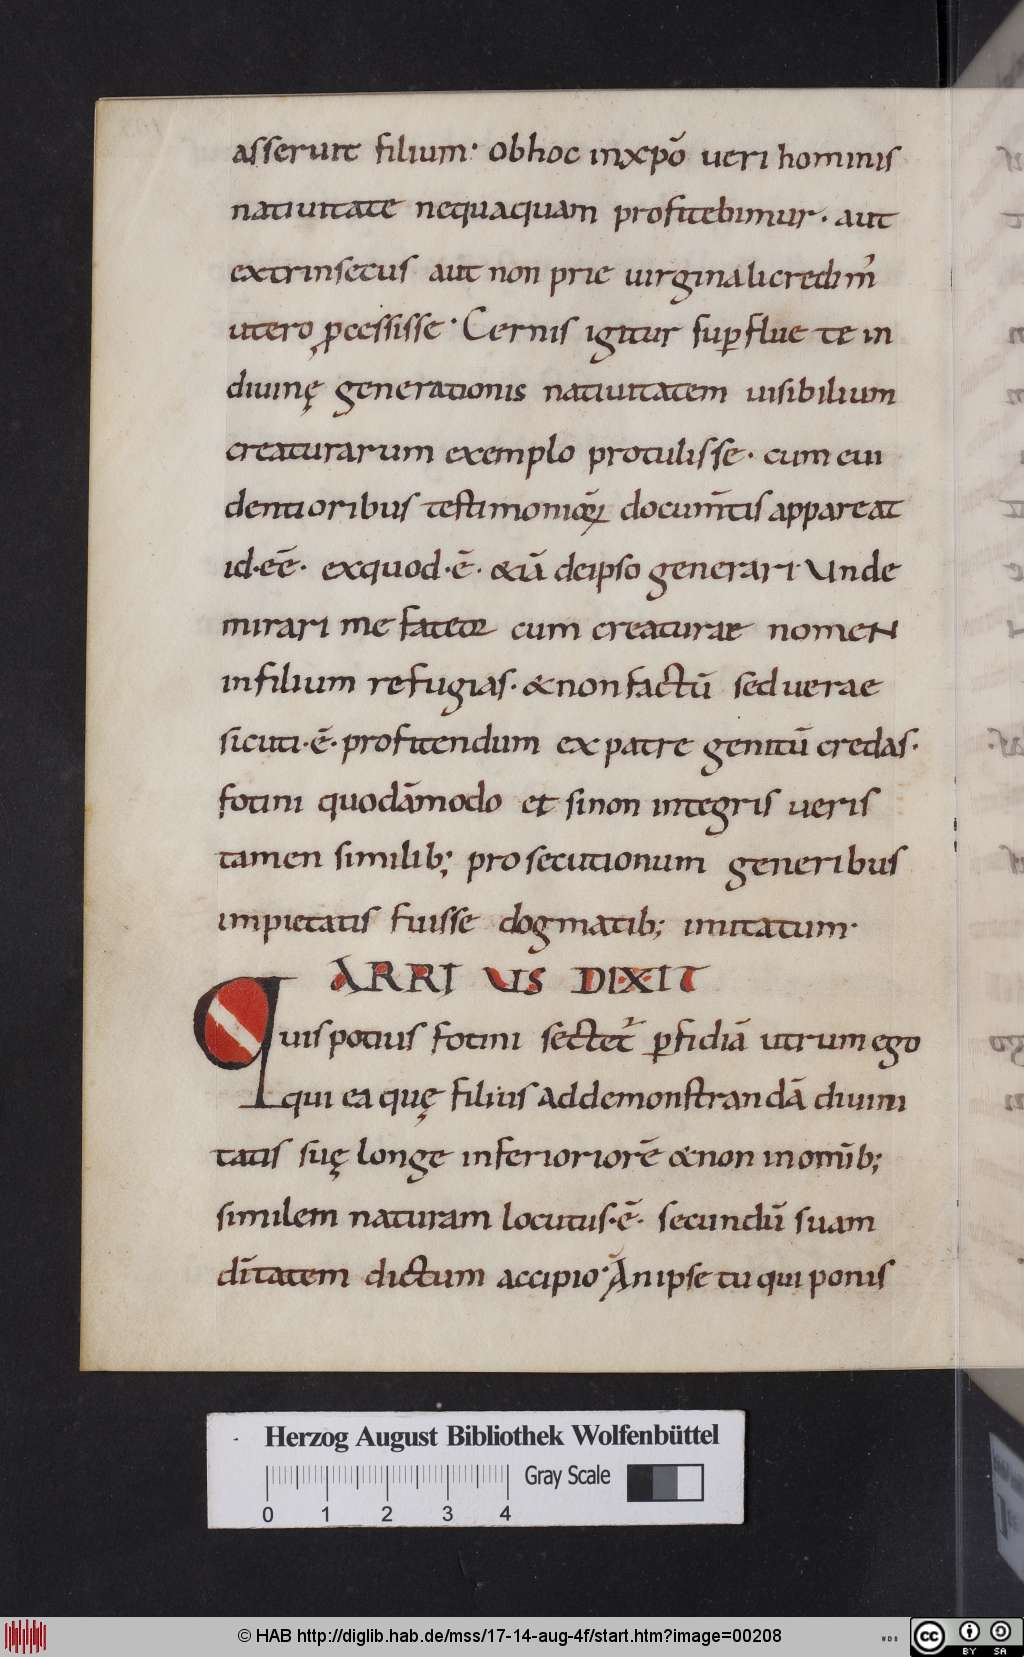 asseruit filium· obhoc inxp̄o ueri hominis
natiuitate nequaquam profitebimur· aut
extrinsecus aut non prie uirginali credim̄
utero ꝓcessisse· Cernis igitur suꝑflue te in
diuinę generationis natiuitatem uisibilium
creaturarum exemplo protulisse· cum eui
dentioribus testimonioꝝ documn̄tis appareat
id·eē· exquod·ē· &iā deipso generari Unde
mirari me fateor cum creaturae nomen
infilium refugias· &non factū sed uerae
sicuti·ē· profitendum ex patre genitū credas·
fotini quodāmodo et sinon integris ueris
tamen similib; prosecutionum generibus
impietatis fuisse dogmatib; imitatum·
ARRIUS DIXIT
Quis potius fotini sectet̄ ꝑfidiā utrum ego
qui ea quę filius ad demonstrandā diuini
tatis suę longe inferiorē &non inomīb;
similem naturam locutus·ē· secundū suam
dītatem dictum accipio· An ipse tu qui ponis
Herzog August Bibliothek Wolfenbüttel
Gray Scale
0 1 2 3 4
© HAB http://diglib.hab.de/mss/17-14-aug-4f/start.htm?image=00208
WDB
cc BY SA